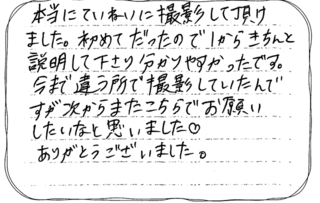 本当にていねいに撮影して頂け
ました。初めてだったので1からきちんと
説明して下さり分かりやすかったです。
今まで違う所で撮影していたんで
すが次からまたこちらでお願い
したいなと思いました♡
ありがとうございました。